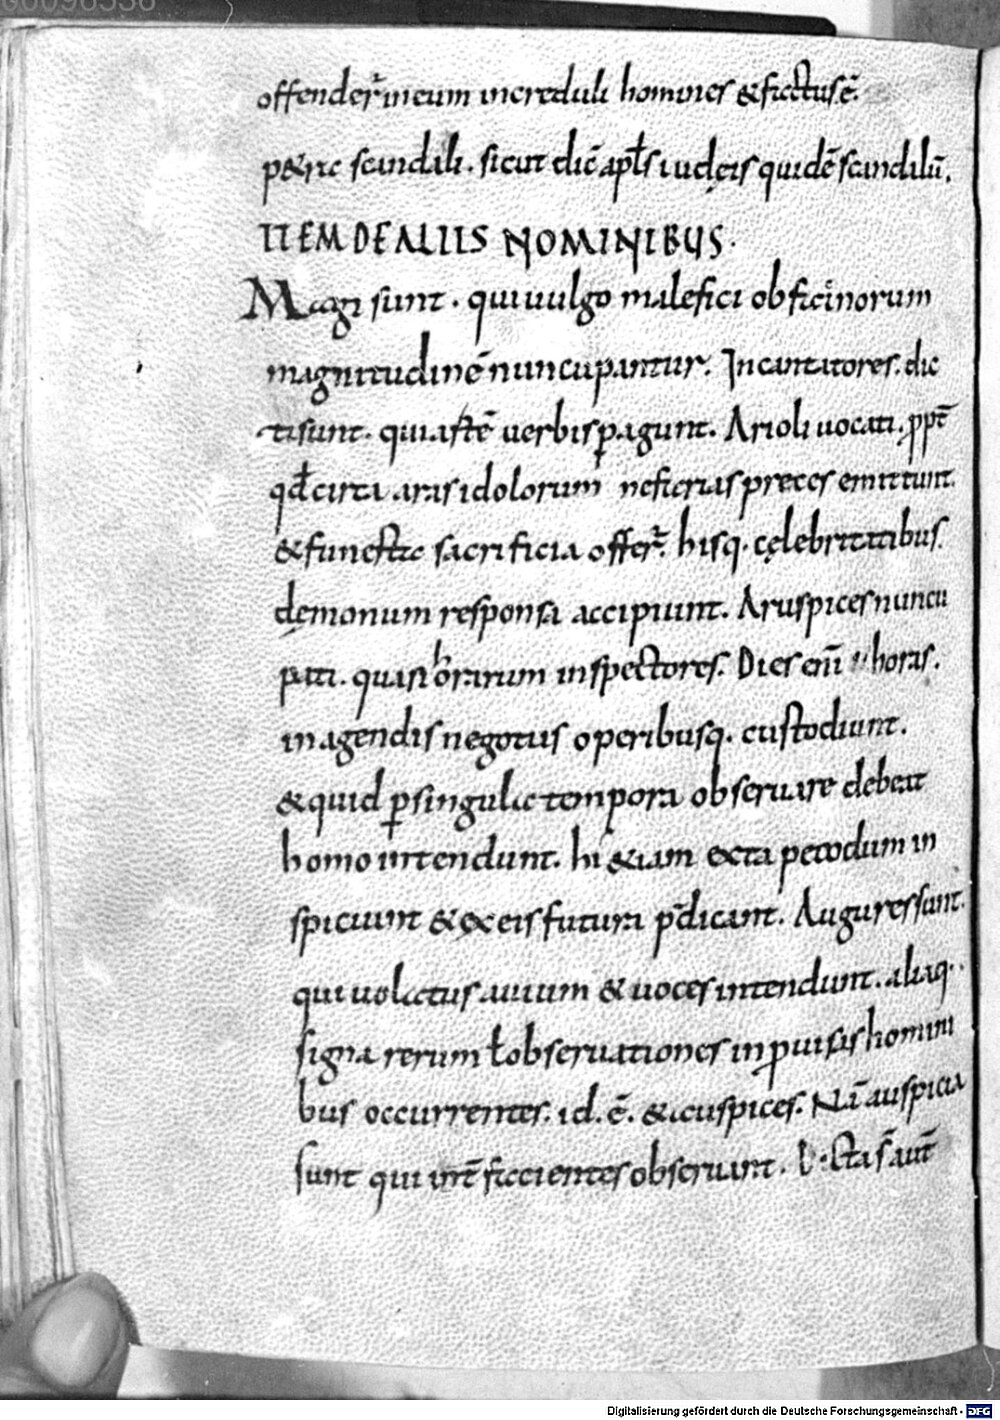 offender̄ in eum increduli homines & fictus ē.
p&ra scandali. sicut dic̄ apłs iudęis quidē scandalū.
ITEM DE ALIIS NOMINIBUS.
Magi sunt. qui uulgo malefici ob facinorum
magnitudinē nuncupantur. Incantatores. dic
ti sunt. qui artē uerbis ꝑagunt. Arioli uocati. ꝓpt̄
qđ circa aras idolorum nefarias preces emittunt.
& funesta sacrificia offer̄. hisq. cęlebritatibus
dęmonum responsa accipiunt. Aruspices nuncu
pati. quasi horarum inspectores. Dies enī & horas.
in agendis negotiis operibusq. custodiunt.
& quid ꝑ singula tempora obseruare debeat
homo intendunt. hi &iam exta pecodum in
spiciunt & ex eis futura p̄dicant. Augures sunt.
qui uolatus auium & uoces intendunt. aliaq.
signa rerum ł obseruationes inprouisas homini
bus occurrentes. id. ē. & auspices. Nā auspicia
sunt qui inr̄ facientes obseruant. D.cta s̄ aut̄
Digitalisierung gefördert durch die Deutsche Forschungsgemeinschaft - DFG